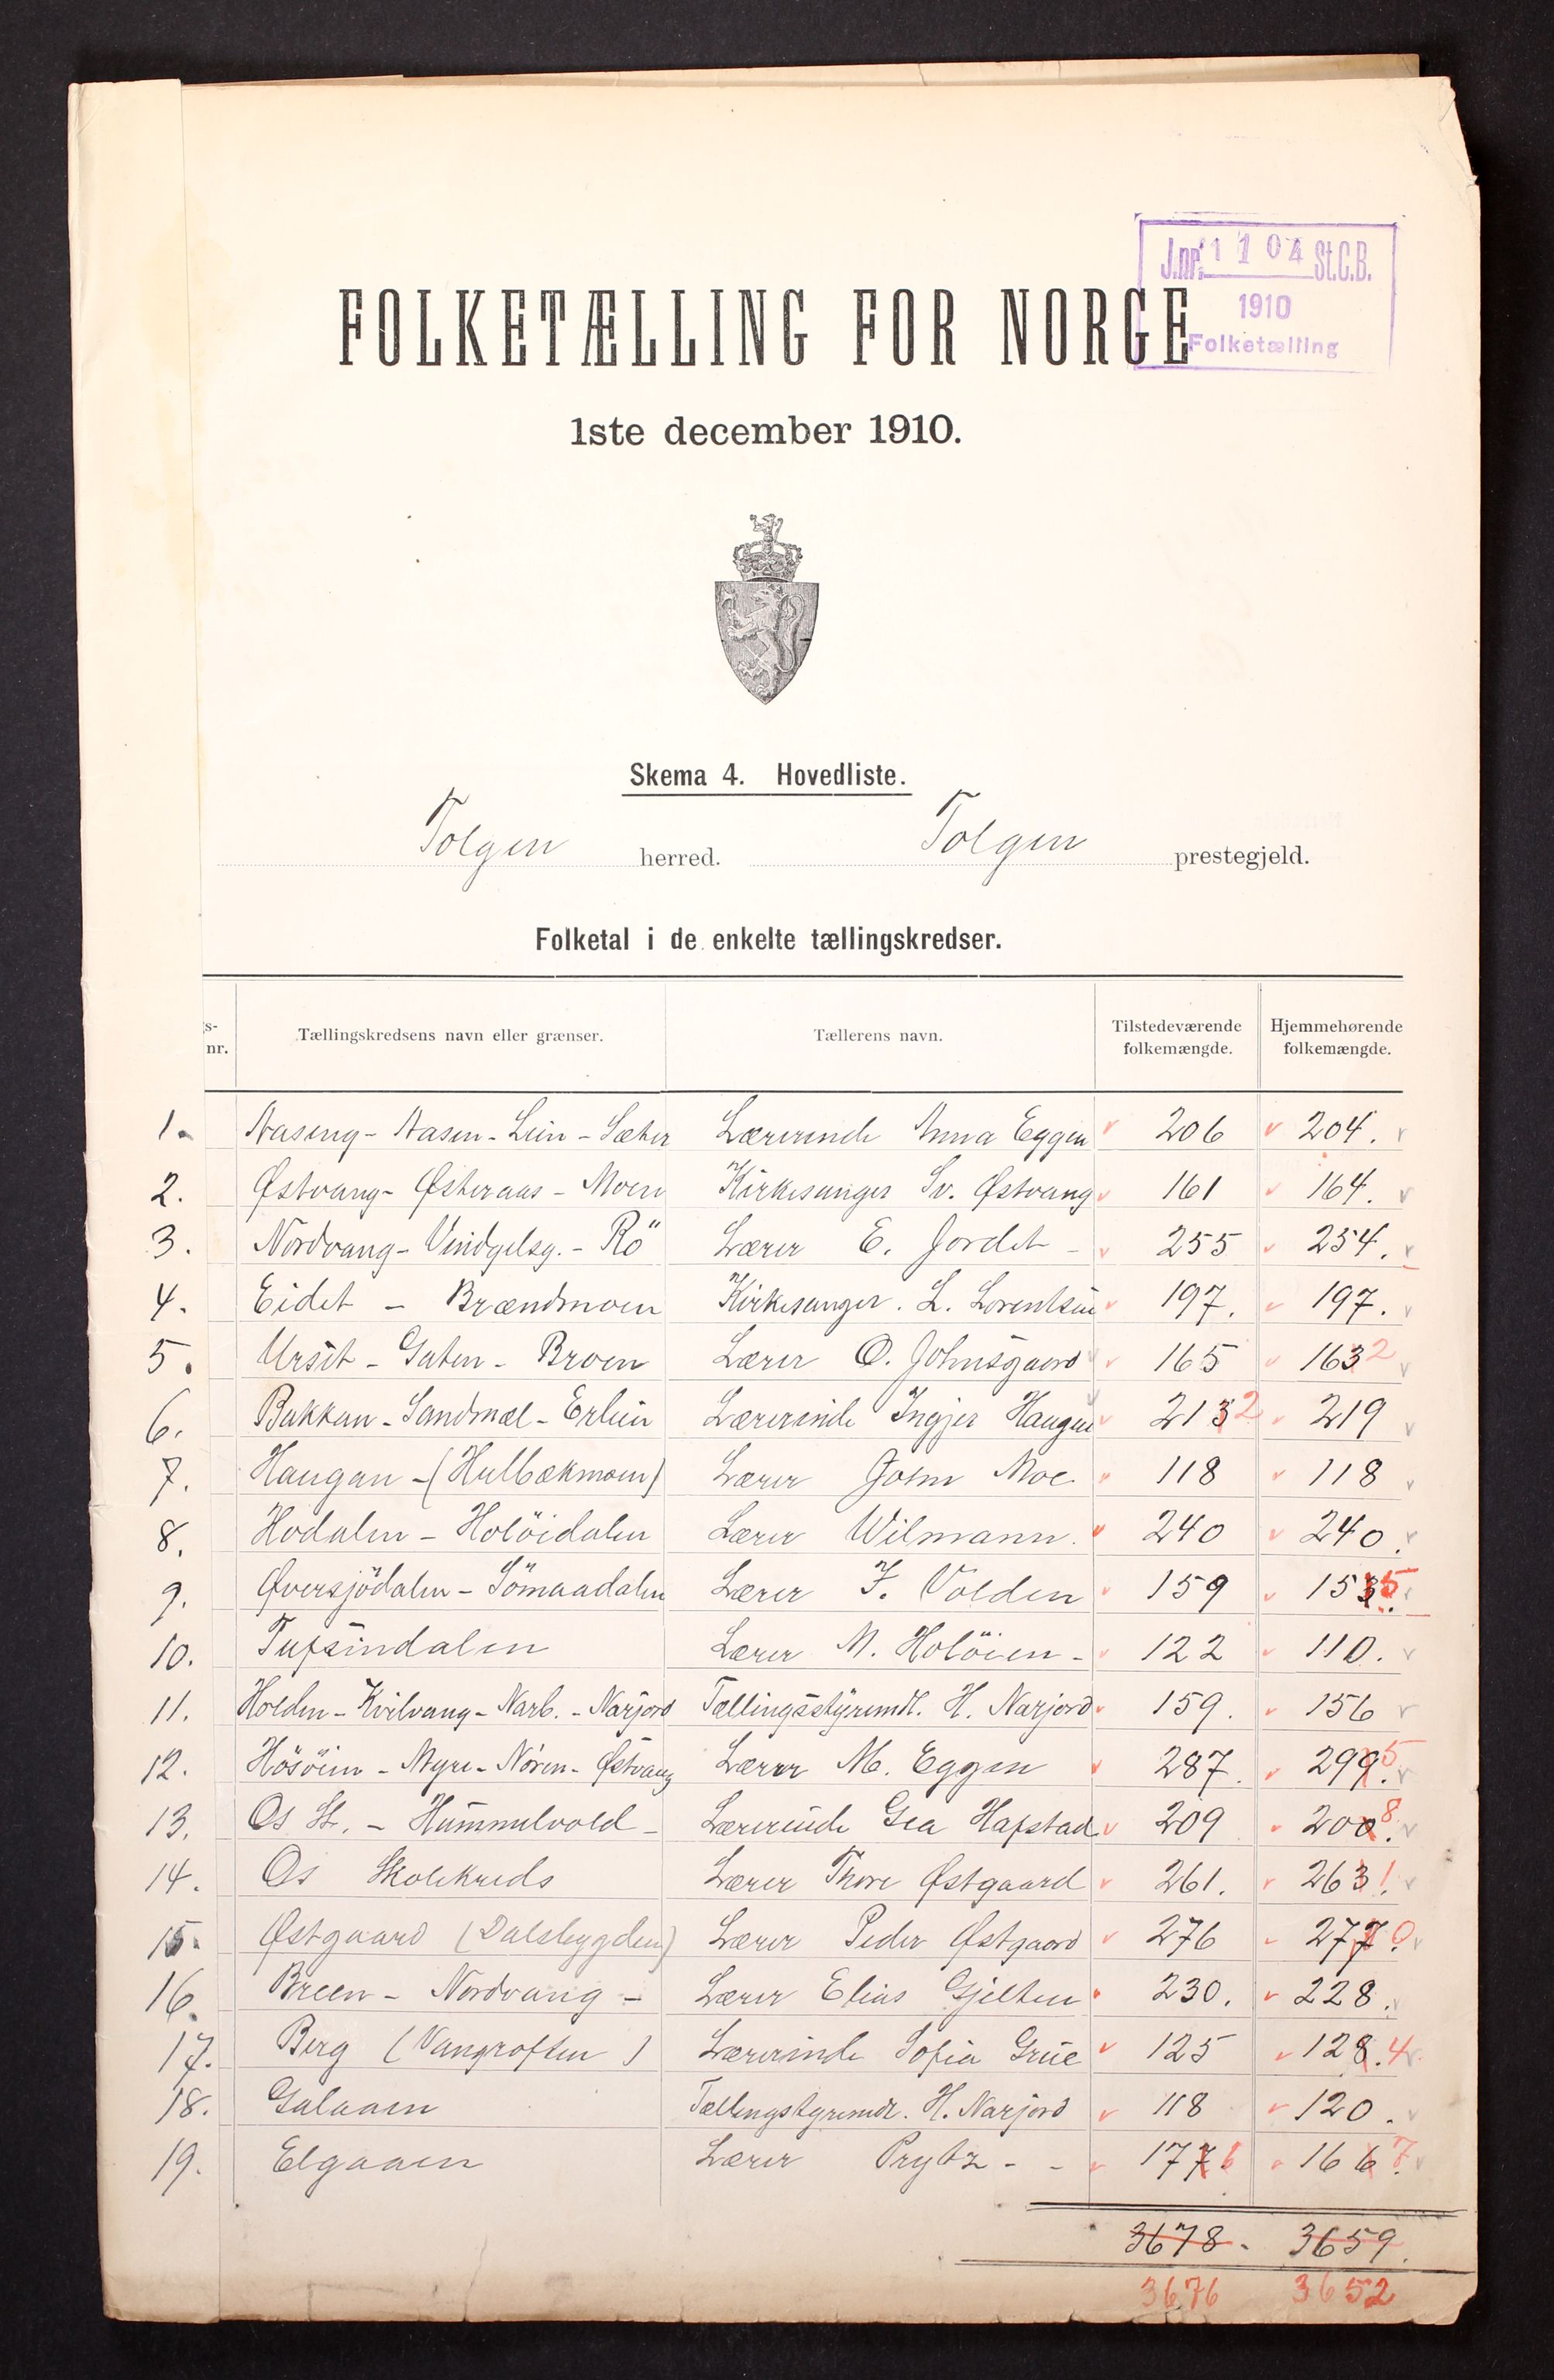 J.nr. 1104 St.C.B.
1910
Folketælling
FOLKETÆLLING FOR NORGE
1ste december 1910.
Skema 4. Hovedliste.
Tolgen herred. Tolgen prestegjeld.
Folketal i de enkelte tællingskredser.
s-nr. Tællingskredsens navn eller grænser. Tællerens navn. Tilstedeværende folkemængde. Hjemmehørende folkemængde.
1. Aaseng - Aasen - Lien - Sæter Lærerinde Anna Eggen 206 204.
2. Østvang - Østeraas - Moen Kirkesanger Sv. Østvang 161 164.
3. Nordvang - Vindgelsg. - Rö Lærer E. Jordet - 255 254.
4. Eidet - Brændmoen Kirkesanger. L. Lorentsen 197. 197.
5. Urset - Gaten - Broen Lærer O. Johnsgaard 165 163 2
6. Bakkan - Sandmæl - Erlien Lærerinde Ingjer Haugen 213 2 219
7. Haugan - (Hulbækmoen) Lærer John Moe 118 118
8. Hodalen - Holöidalen Lærer Wilmann. 240 240.
9. Øversjödalen - Sömaadalen Lærer J. Volden 159 153 5.
10. Tufsindalen Lærer M. Holöien - 122 110.
11. Holden - Kvilvang - Narb. - Narjord Tællingsstyremdl. H. Narjord 159. 156
12. Hösöien - Myre - Nören - Østvang Lærer M. Eggen 287. 299 5.
13. Os St. - Hummelvold - Lærerinde Gea Hafstad 209 200 8.
14. Os Skolekreds Lærer Thore Østgaard 261. 263 1.
15. Østgaard (Dalsbygden) Lærer Peder Østgaard 276 277 0.
16. Breen - Nordvang - Lærer Elias Gjelten 230. 228.
17. Berg (Vangrøften) Lærerinde Sofia Grue 125 128. 4
18. Galaaen Tællingstyremdl. H. Narjord 118 120.
19. Elgaaen Lærer Prytz - - 177 6 166 7.
3678 - 3659.
3676 3652